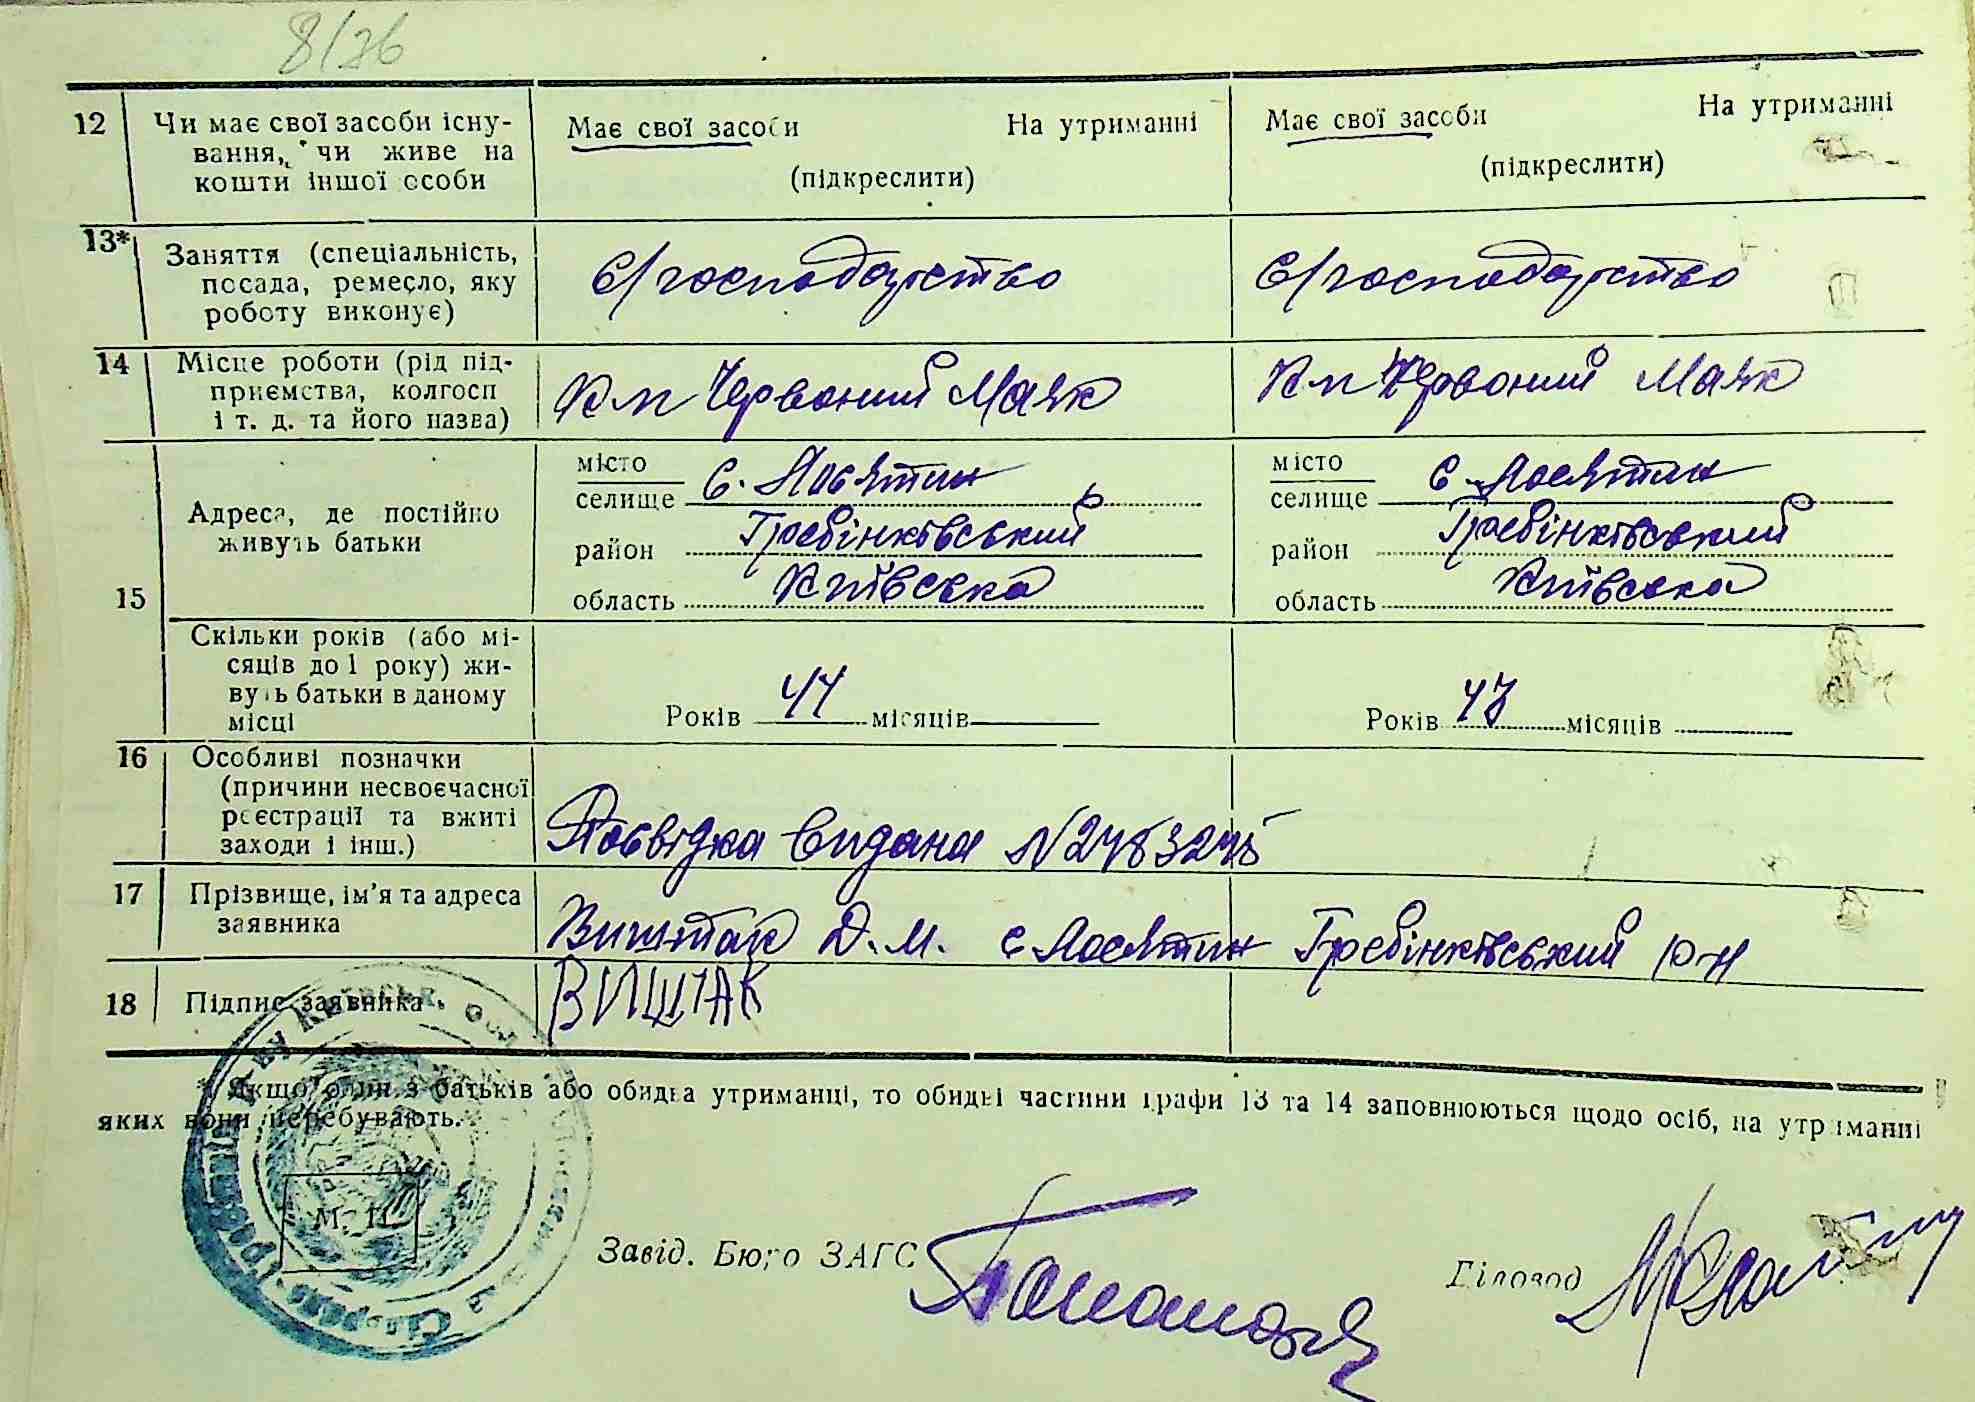 8/76
12 Чи має свої засоби існу- Має свої засоби На утриманні Має свої засоби На утриманні
вання, чи живе на (підкреслити) (підкреслити)
кошти іншої особи
13* Заняття (спеціальність, С/господарство С/господарство
посада, ремесло, яку
роботу виконує)
14 Місце роботи (рід під- Кл Червоний Маяк Кл Червоний Маяк
приємства, колгосп
і т. д. та його назва)
15 Адреса, де постійно
живуть батьки
місто селище с. Лосятин місто селище с. Лосятин
район Гребінківський район Гребінківський
область Київська область Київська
Скільки років (або мі-
сяців до 1 року) жи-
вуть батьки в даному
місці
Років 44 місяців Років 43 місяців
16 Особливі позначки
(причини несвоєчасної
реєстрації та вжиті
заходи і інш.)
Посвідка видана N 2483245
17 Прізвище, ім'я та адреса Виштак Д. М. с Лосятин Гребінківський р-н
заявника
18 Підпис заявника ВИШТАК
* Якщо один з батьків або обидва утриманці, то обидві частини графи 13 та 14 заповнюються щодо осіб, на утриманні
яких вони перебувають.
М. П.
Завід. Бюро ЗАГС Діловод